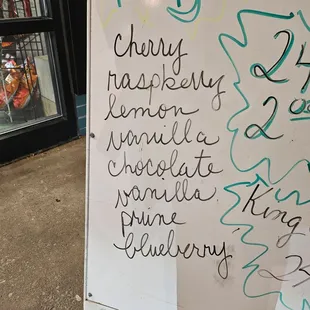 cherry
raspberry
lemon
vanilla
chocolate
vanilla
prune
blueberry
24
2 00
King